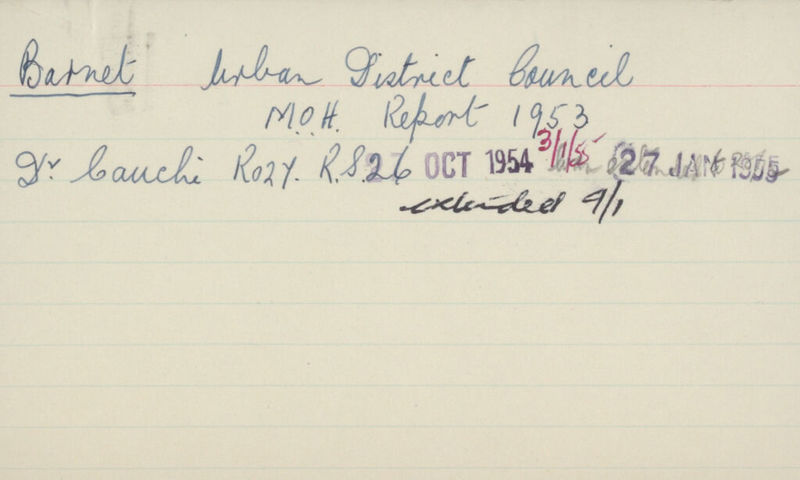 Barnet Urban District Council
M.O.H. Report 1953
Dr Cauchi Ro2y. R.S. 26 OCT 1954 3/1/55 27 JAN 1955
extended 9/1